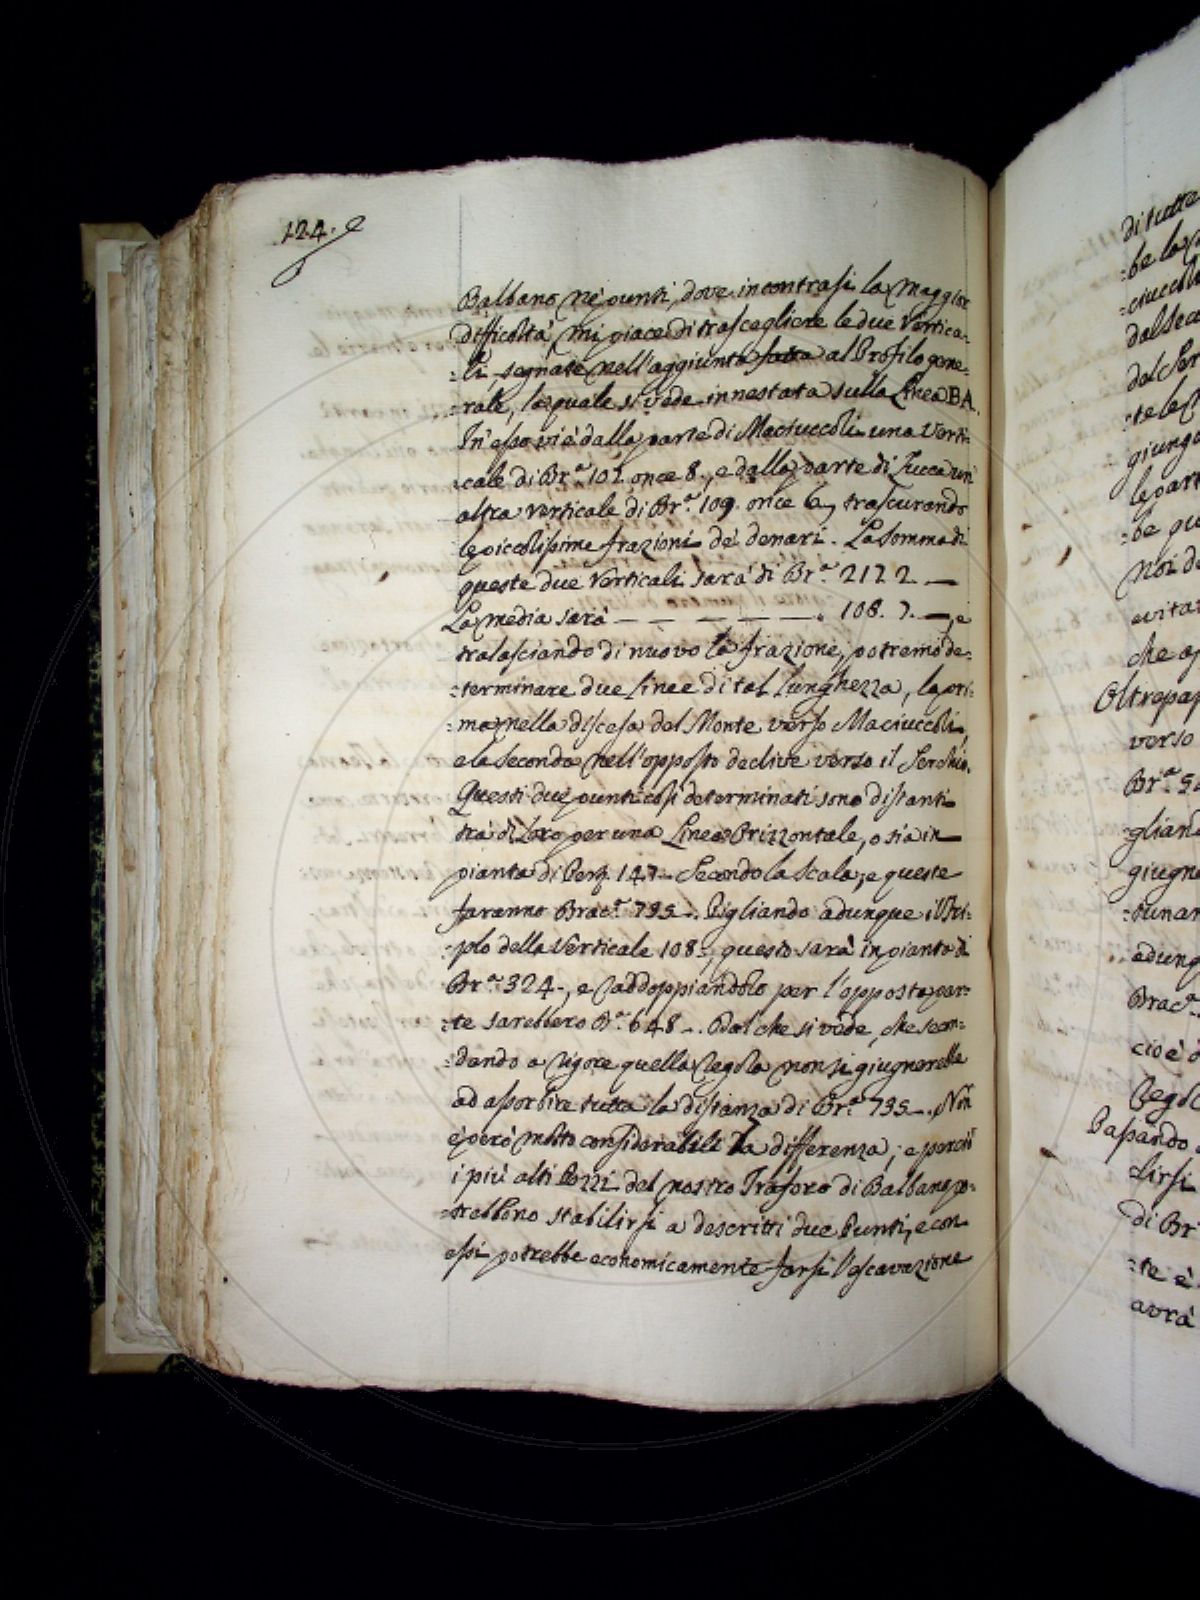 124.
Balbano ne' punti, dove incontrasi la maggior
difficoltà, mi piace di trascegliere le due Vertica-
=li, segnate nell'aggiunta fatta al Profilo gene-
=rale, la quale si vede innestata sulla Linea BA.
In esso vi è dalla parte di Maciuccoli una Verti-
=cale di Br.ª 107. once 8., e dalla parte di Lucca un'
altra verticale di Br.ª 109. once 6, trascurando
le piccolissime frazioni de' denari. La Somma di
queste due Verticali sarà di Br.ª 217 2 —
La media sarà — — — — — — . 108. 7. —, e
tralasciando di nuovo la frazione, potremo de-
=terminare due linee di tal lunghezza, la pri-
=ma nella discesa del Monte verso Maciuccoli,
e la seconda nell'opposto declive verso il Serchio.
Questi due punti così determinati sono distanti
trà di Loro per una Linea Orizzontale, o sia in
pianta di Pert. 147. — Secondo la Scala, e queste
faranno Brac.ª 735 —. Pigliando adunque il Tri-
=plo della Verticale 108 =, questo sarà in pianta di
Br.ª 324 -, e raddoppiandolo per l'opposta par-
=te sarebbero B.ª 648 -. Dal che si vede, che secon-
=dando a rigore quella regola non si giugnerebbe
ad assorbire tutta la distanza di Br.ª 735 —. Non
è però molto considerabile la differenza, e perciò
i più alti Pozzi del nostro Traforo di Balbano po-
=trebbono stabilirsi a descritti due Punti, e con
essi potrebbe economicamente farsi l'escavazione
di tutte
=be la
dal Ser
=te le
giunga
le part
=be qu
noi d
evitar
che ap
Oltrepas
verso
Br.ª
=gliand
giugne
=tunar
adunq
Brac.ª
cioè
regol
Passando
=lirsi
di Br
=te è
avrà